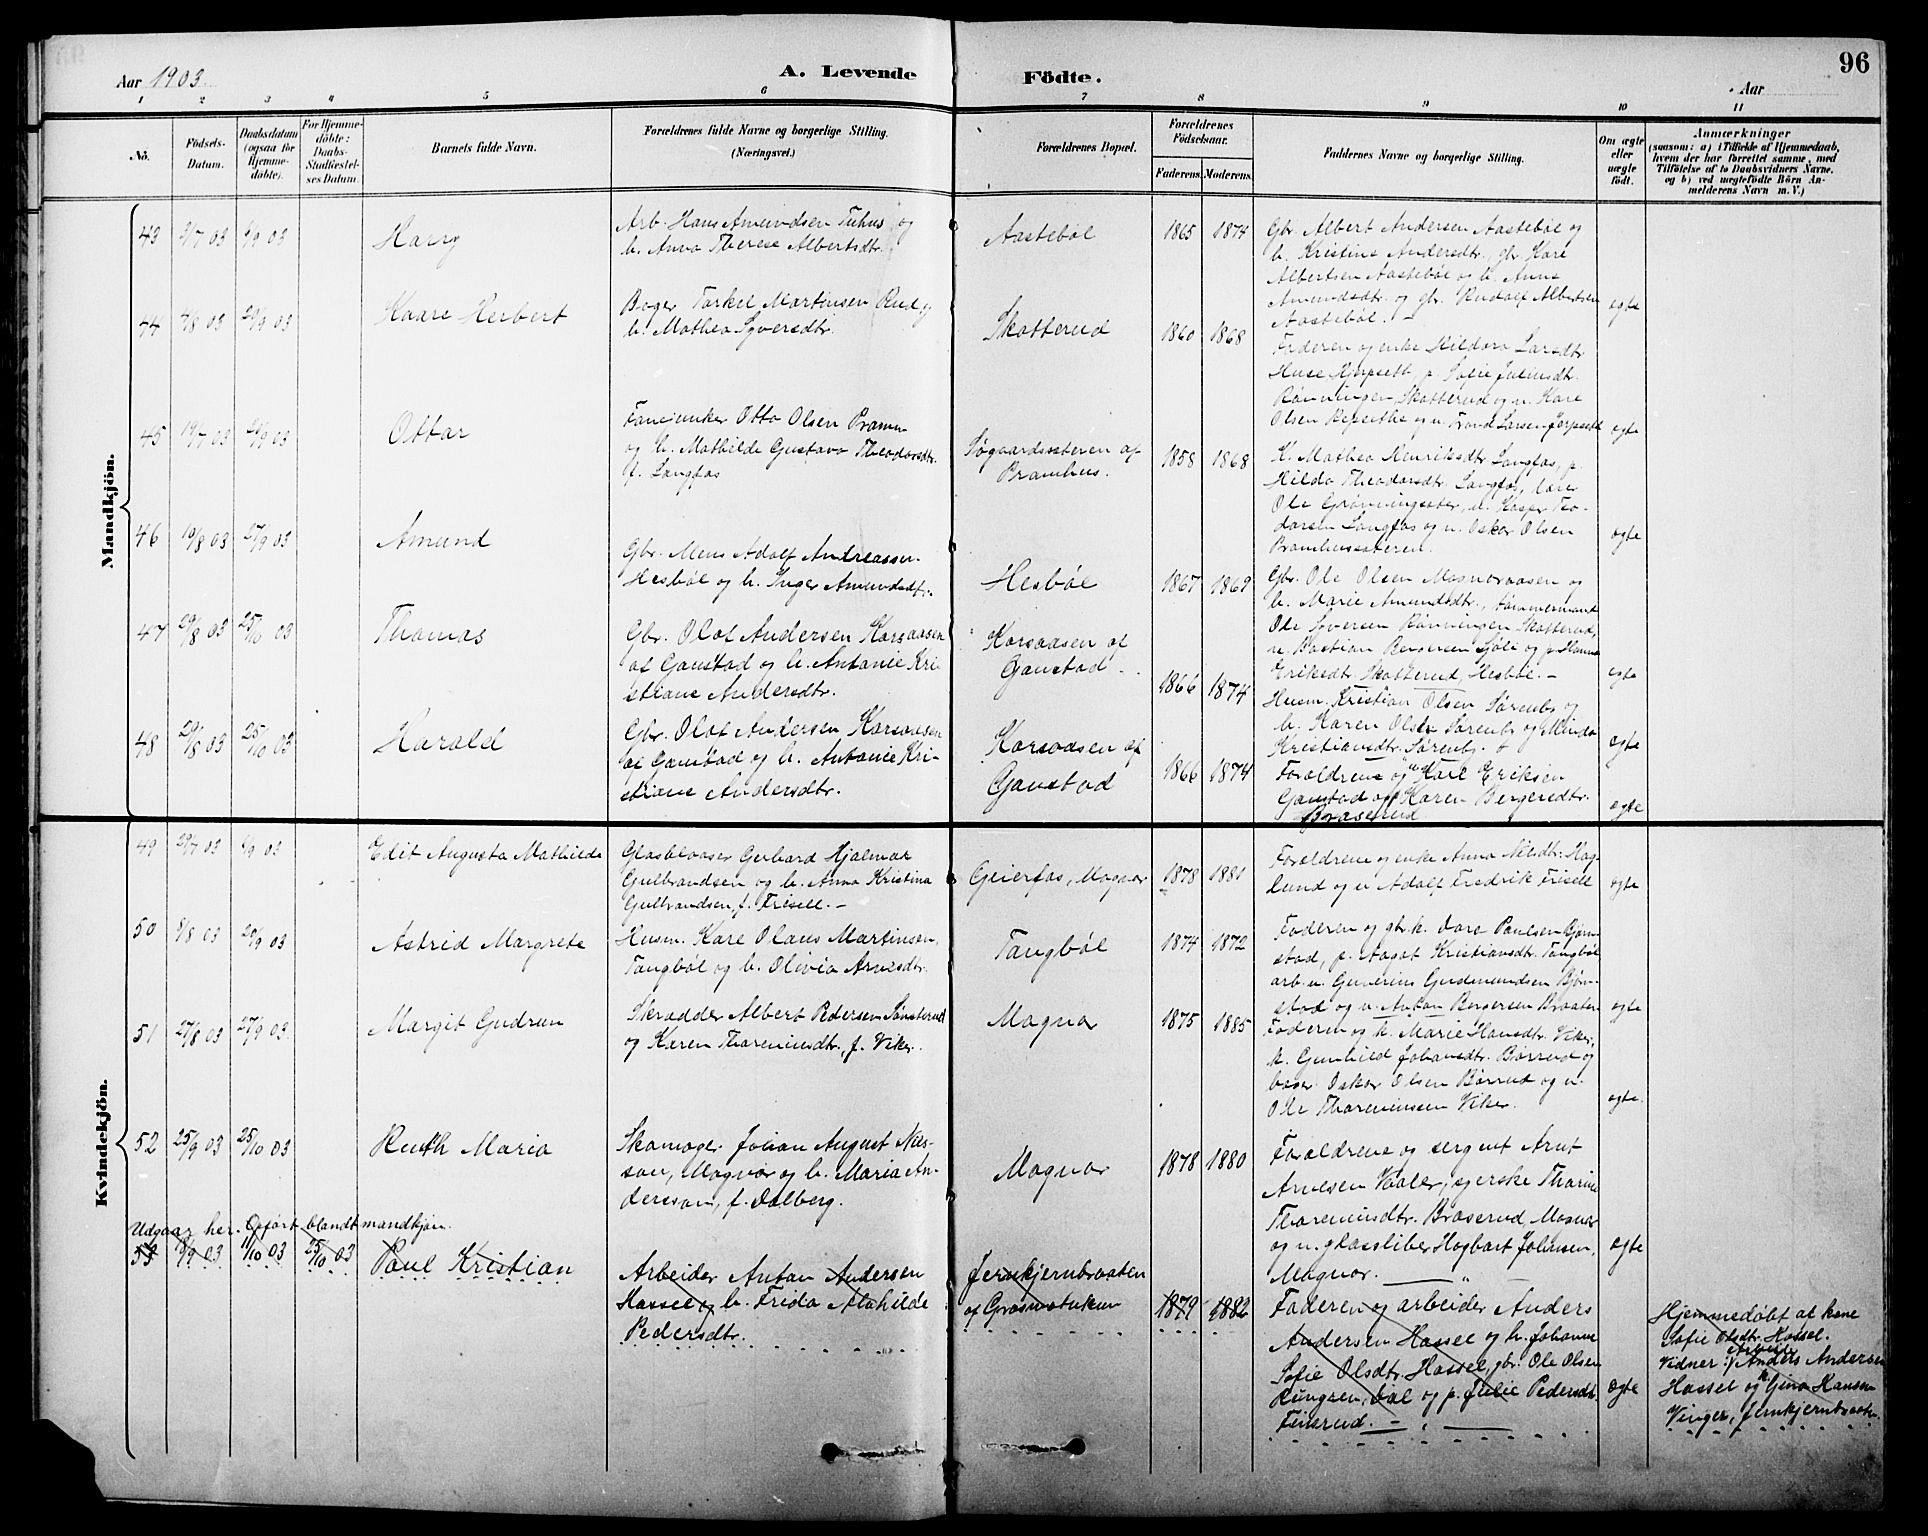 96
Aar 1903.
A. Levende Födte.
Aar
1 2 3 4 5 6 7 8 9 10 11
No.
Födsels-
Datum.
Daabsdatum
(ogsaa for
Hjemme-
döbte).
For Hjemme-
döbte:
Daabs-
Stadfæstel-
ses Datum.
Barnets fulde Navn.
Forældrenes fulde Navne og borgerlige Stilling.
(Næringsvei.)
Forældrenes Bopæl.
Forældrenes
Födselsaar.
Faderens. Moderens.
Faddernes Navne og borgerlige Stilling.
Om ægte
eller
uægte
födt.
Anmærkninger
(saasom: a) i Tilfælde af Hjemmedaab,
hvem der har forrettet samme, med
Tilföielse af to Daabsvidners Navne.
og b) ved uægtefödte Börn An-
melderens Navn m. V.)
Mandkjön.
43
Harry
Arb. Hans Amundsen Tuhus og
h. Anna Therese Albertsdtr.
Aastebøl
1865 1874
Gbr. Albert Andersen Aastebøl og
h. Kristine Andersdtr., gbr. Kare
Albertsen Aastebøl og h. Anne
Amundsdtr. og gbr. Rudolf Albertsen
Aastebøl. –
ægte
44 4/8 03 20/9 03
Kaare Herbert
Bager Torkel Martinsen Rud og
h. Mathea Syversdtr.
Skotterud
1860 1868
Faderen og enke Hildora Larsdtr.
Huse p. Sofie Juliusdtr.
Rønningen, Skotterud og u. Kare
Olsen og u. Larsen
ægte
45 19/7 03 20/9 03
Ottar
Otto Olsen Pramm
og h. Mathilde Gustava Theodorsdtr.
f. Langfos
Søgaardssæteren af
Pramhus.
1858 1868
K. Mathea Henriksdtr. Langfos, p.
Hilda Theodorsdtr. Langfos, lærer
Ole u. Kasper Teo-
dorsen Langfos og u. Oskar Olsen
Pramhussæteren.
ægte
46 19/8 03 27/9 03
Amund
Gbr. Mens Adolf Andreassen
Hesbøl og h. Inger Amundsdtr.
Hesbøl
1867 1869
Gbr. Ole Olsen og
h. Marie Amundsdtr., tømmermand
Ole Syversen Rønningen Skotterud,
u. Bastian Bergersen og p. Hanna
Eriksdtr. Skotterud, Hesbøl. –
ægte
47 29/8 03 25/10 03
Thomas
Gbr. Olof Andersen Korsaasen
af Ganstad og h. Antonie Kri-
stiane Andersdtr.
Korsaasen af
Ganstad
1866 1874
Husm. Kristian Olsen Sørenbs og
h. Karen Olsdtr. Sørenbs og Minda
Kristiansdtr. Sørenbs.
ægte
48 29/8 03 25/10 03
Harald
Gbr. Olof Andersen Korsaasen
af Ganstad og h. Antonie Kri-
stiane Andersdtr.
Korsaasen af
Ganstad
1866 1874
Forældrene og Karl Eriksen
Ganstad og Karen Bergersdtr.
Braserud
ægte
Kvindekjön.
49 29/7 03
Edit Augusta Mathilde
Glasblaaser Gerhard Hjalmar
Gulbrandsen og h. Anna Kristina
Gulbrandsen, f. Frisell. –
Geierfos, Magnor
1878 1881
Forældrene og enke Anna Nilsdtr. Hag-
lund og u. Adolf Fredrik Frisell
ægte
50 8/8 03 20/9 03
Astrid Margrete
Husm. Kare Olaus Martinsen
Tangbøl og h. Olivia Arnesdtr.
Tangbøl
1874 1872
Faderen og gbr.k. Paulsen Bjørn-
stad, p. Aagot Kristiansdtr. Tangbøl
arb. u. Gudmundsen Bjørn-
stad og u. Anton Bergersen Braaten
ægte
51 27/8 03 27/9 03
Margit Gudrun
Skrædder Albert Pedersen
og Karen Thoreninsdtr., f. Viker.
Magnor
1875 1885
Faderen og k. Marie Hansdtr. Viker,
k. Gunhild Johansdtr. Børrud og
baser Oskar Olsen Børrud og u.
Ole Thoreninssen Viker.
ægte.
52 25/9 03 25/10 03
Ruth Maria
Skomager Johan August Nils-
son, Magnor og h. Maria An-
dersson, f. Dalberg.
Magnor
1878 1880
Forældrene og sergent Arnt
Arnesen Vaaler, syerske Thorine
Thoreninsdtr. Braserud, Magnor
og u. glassliber Hagbart Johansen,
Magnor.
ægte
Udgaar her. Opført blandt mandkjøn.
53 8/9 03 11/10 03 25/10 03
Paul Kristian
Arbeider Anton Andersen
Hassel og h. Frida Mathilde
Pedersdtr.
Jernkjernbraaten
af Grasmotukun
1879 1882
Faderen og arbeider Anders
Andersen Hassel og h. Johanne
Sofie Olsdtr. Hassel, gbr. Ole Olsen
og p. Julie Pedersdtr.
Feiserud. –
ægte
Hjemmedøbt af kone
Sofie Olsdtr. Hassel.
Vidner: Arbeider Anders Andersen
Hassel og k. Gina Hansen
Vinger, Jernkjernbraaten.